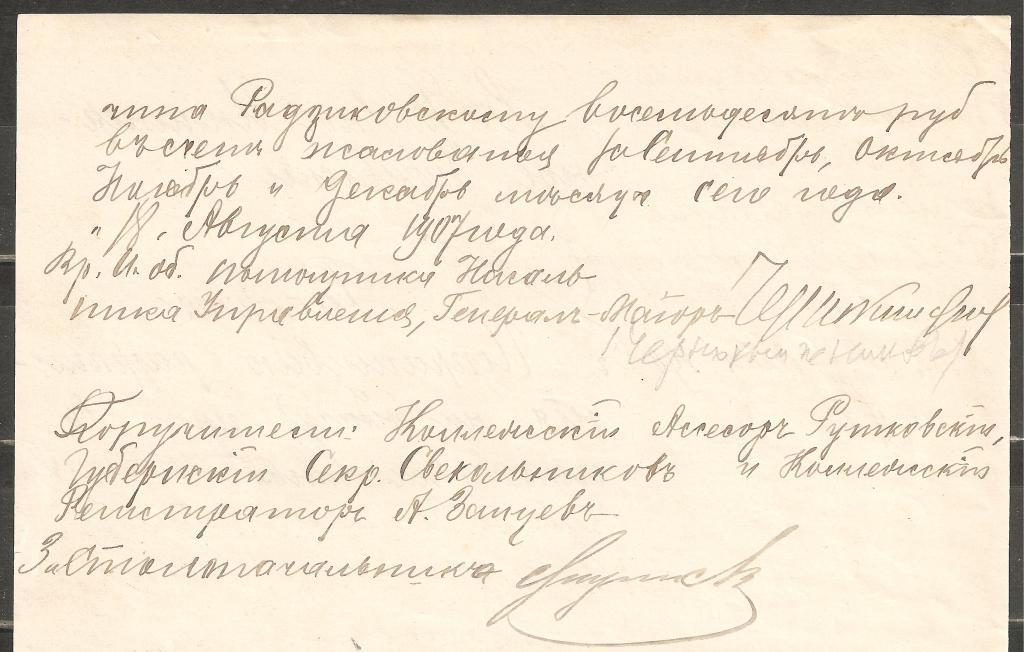 чина Радзиковскому восемьдесятъ руб
въ счетъ жалованья за Сентябрь, Октябрь
Ноябрь и Декабрь мѣсяца сего года.
"18" Августа 1907 года.
Вр. И. об. помощника Началь
ника Управленія, Генералъ-Маіоръ
Поручители: Коллежскій Ассесоръ Рутковскій,
Губернскій Секр. Свекольниковъ и Коллежскій
Регистраторъ А. Зайцевъ
За Столоначальника